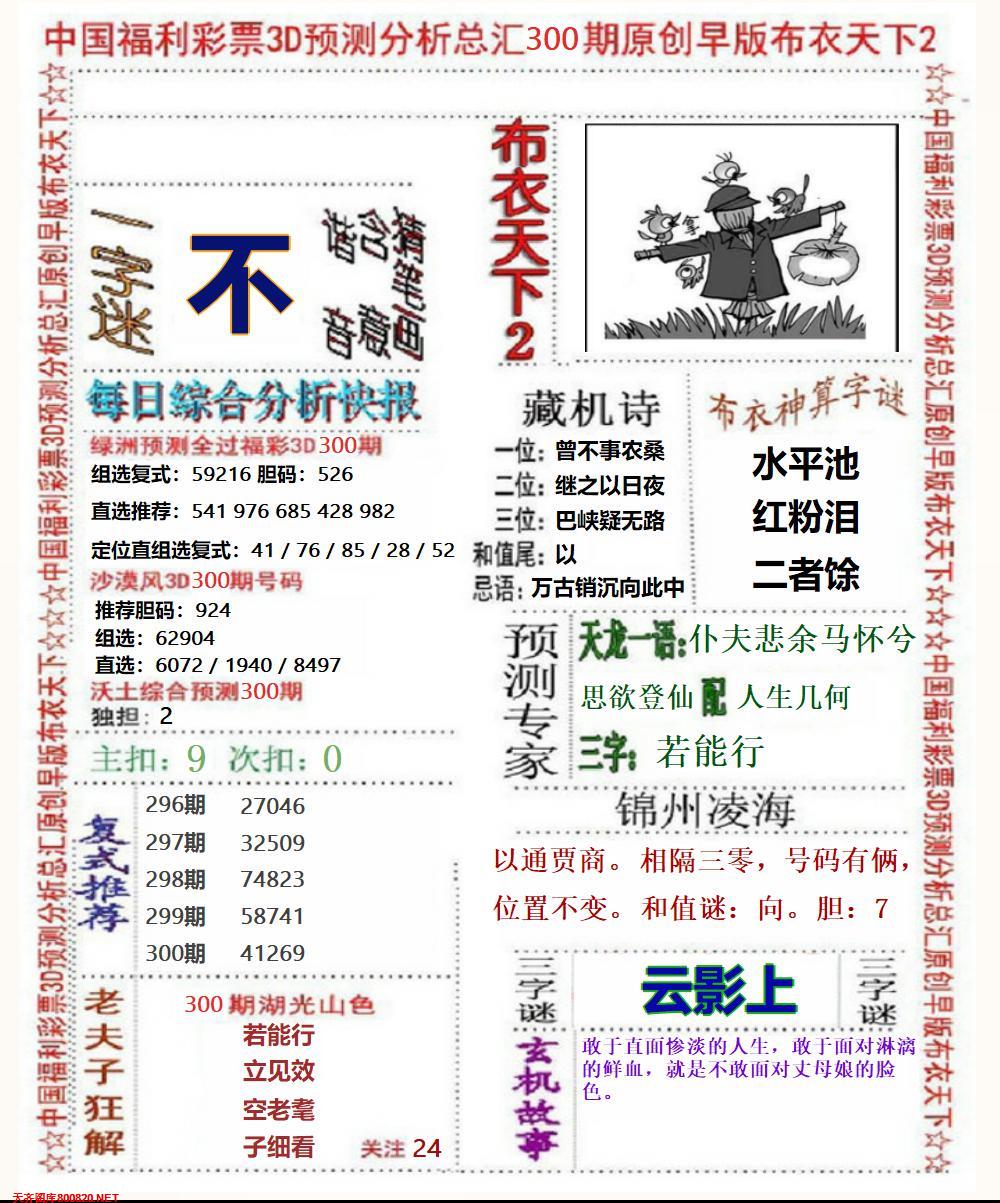 中国福利彩票3D预测分析总汇300期原创早版布衣天下2
☆☆中国福利彩票3D预测分析总汇原创早版布衣天下☆☆☆中国福利彩票3D预测分析总汇原创早版布衣天下☆☆
一字迷
不
猜笔画
含意
谐音
布衣天下2
拿
每日综合分析快报
绿洲预测全过福彩3D300期
组选复式：59216 胆码：526
直选推荐：541 976 685 428 982
定位直组选复式：41 / 76 / 85 / 28 / 52
沙漠风3D300期号码
推荐胆码：924
组选：62904
直选：6072 / 1940 / 8497
沃土综合预测300期
独担：2
主扣：9 次扣：0
复式推荐
296期 27046
297期 32509
298期 74823
299期 58741
300期 41269
老夫子狂解
300期湖光山色
若能行
立见效
空老耄
子细看
关注 24
藏机诗
一位：曾不事农桑
二位：继之以日夜
三位：巴峡疑无路
和值尾：以
忌语：万古销沉向此中
布衣神算字谜
水平池
红粉泪
二者馀
预测专家
天龙一语:仆夫悲余马怀兮
思欲登仙 配 人生几何
三字：若能行
锦州凌海
以通贾商。相隔三零，号码有俩，
位置不变。和值谜：向。胆：7
三字谜
云影上
三字谜
玄机故事
敢于直面惨淡的人生，敢于面对淋漓
的鲜血，就是不敢面对丈母娘的脸
色。
☆☆中国福利彩票3D预测分析总汇原创早版布衣天下☆☆☆中国福利彩票3D预测分析总汇原创早版布衣天下☆☆
天齐图库800820.NET